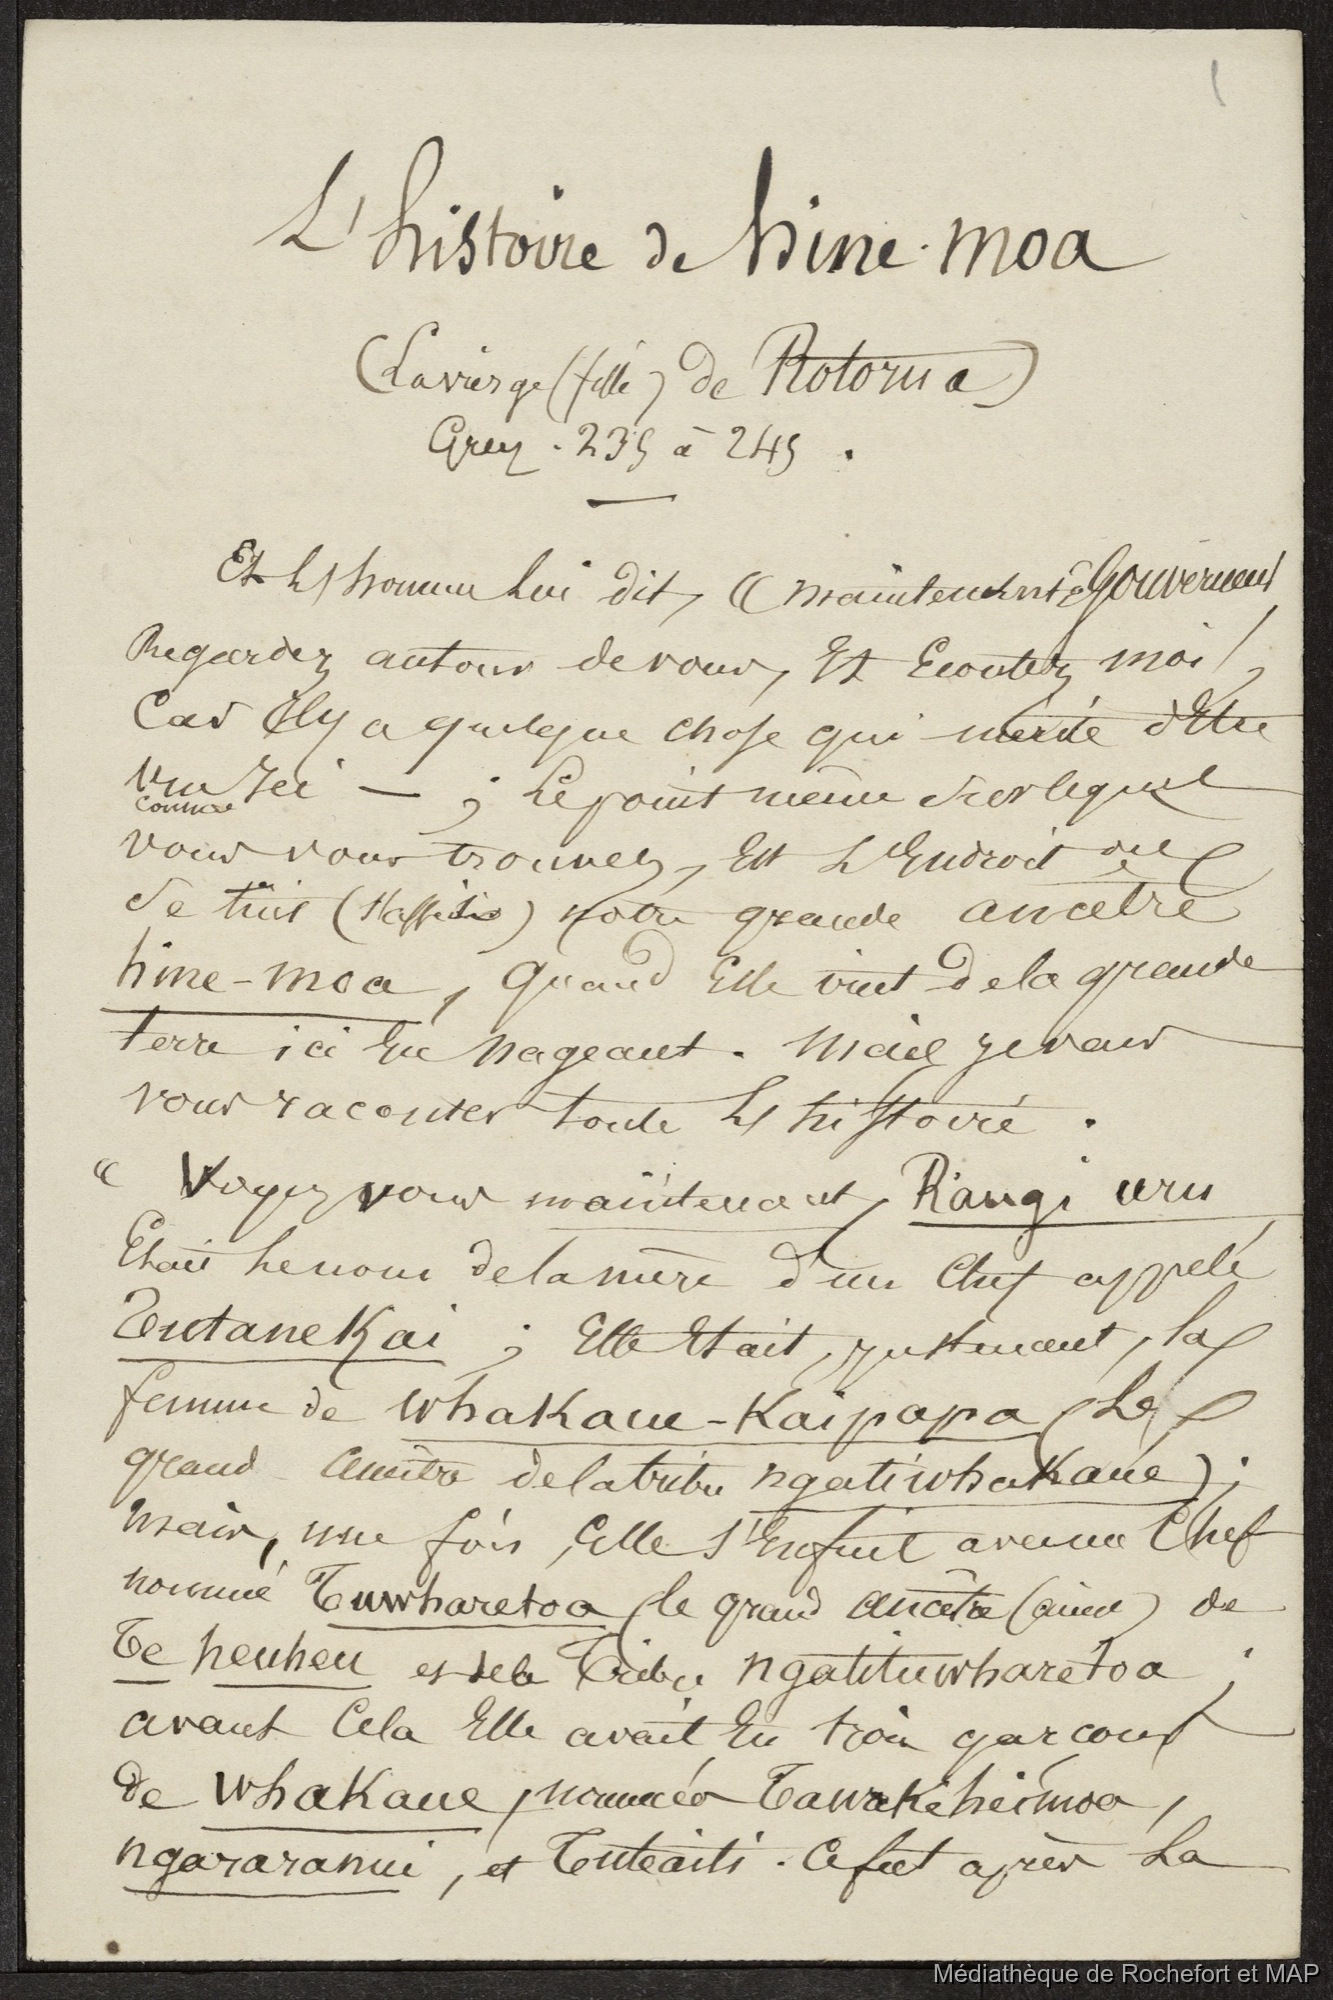 1
L'histoire de hine-moa
(La vierge (fille) de Rotorua)
Grey . 235 à 245 .
Et l'homme lui dit, « maintenant ô Gouverneur
Regardez autour de vous, Et Ecoutez moi,
Car Il y a quelque chose qui mérite d'Etre
vu Ici — ; Le point même sur lequel
comme
vous vous trouvez, Est L'Endroit où
se tint (s'assit) notre grande ancêtre
hine-moa, quand Elle vint de la grande
terre ici En nageant. Mais je vais
vous raconter toute l'histoire .
« Voyez vous maintenant, Rangi uru
Etait le nom de la mère d'un Chef appelé
Tutanekai ; Elle Etait, justement, la
femme de whakaue-Kaipapa (Le
grand ancêtre de la tribu ngatiwhakaue) ;
mais, une fois, Elle s'Enfuit avec un Chef
nommé Tuwharetoa (le grand ancêtre (aieul) de
Te heuheu et de la Tribu ngatituwharetoa ;
avant Cela Elle avait Eu trois garcons
de whakaue, nommés Tawakeheimoa,
ngararanui, et Tuteaiti. Ce fut après La
Médiathèque de Rochefort et MAP